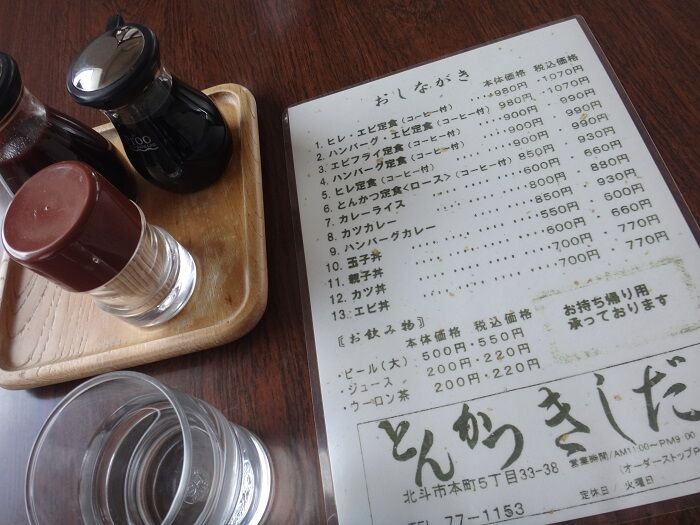 おしながき
本体価格 税込価格
1. ヒレ・エビ定食(コーヒー付) ……980円・1070円
2. ハンバーグ・エビ定食(コーヒー付) 980円・1070円
3. エビフライ定食(コーヒー付) ……900円 990円
4. ハンバーグ定食(コーヒー付) ……900円 990円
5. ヒレ定食(コーヒー付) ……900円 990円
6. とんかつ定食<ロース>(コーヒー付) 850円 930円
7. カレーライス ……600円 660円
8. カツカレー ……800円 880円
9. ハンバーグカレー ……850円 930円
10. 玉子丼 ……550円 600円
11. 親子丼 ……600円 660円
12. カツ丼 ……700円 770円
13. エビ丼 ……700円 770円
〖お飲み物〗 本体価格 税込価格
・ビール(大) 500円・550円
・ジュース 200円・220円
・ウーロン茶 200円・220円
お持ち帰り用
承っております
とんかつ きしだ
営業時間/AM11:00〜PM9:00
(オーダーストップP
北斗市本町5丁目33-38
定休日/ 火曜日
TEL 77-1153